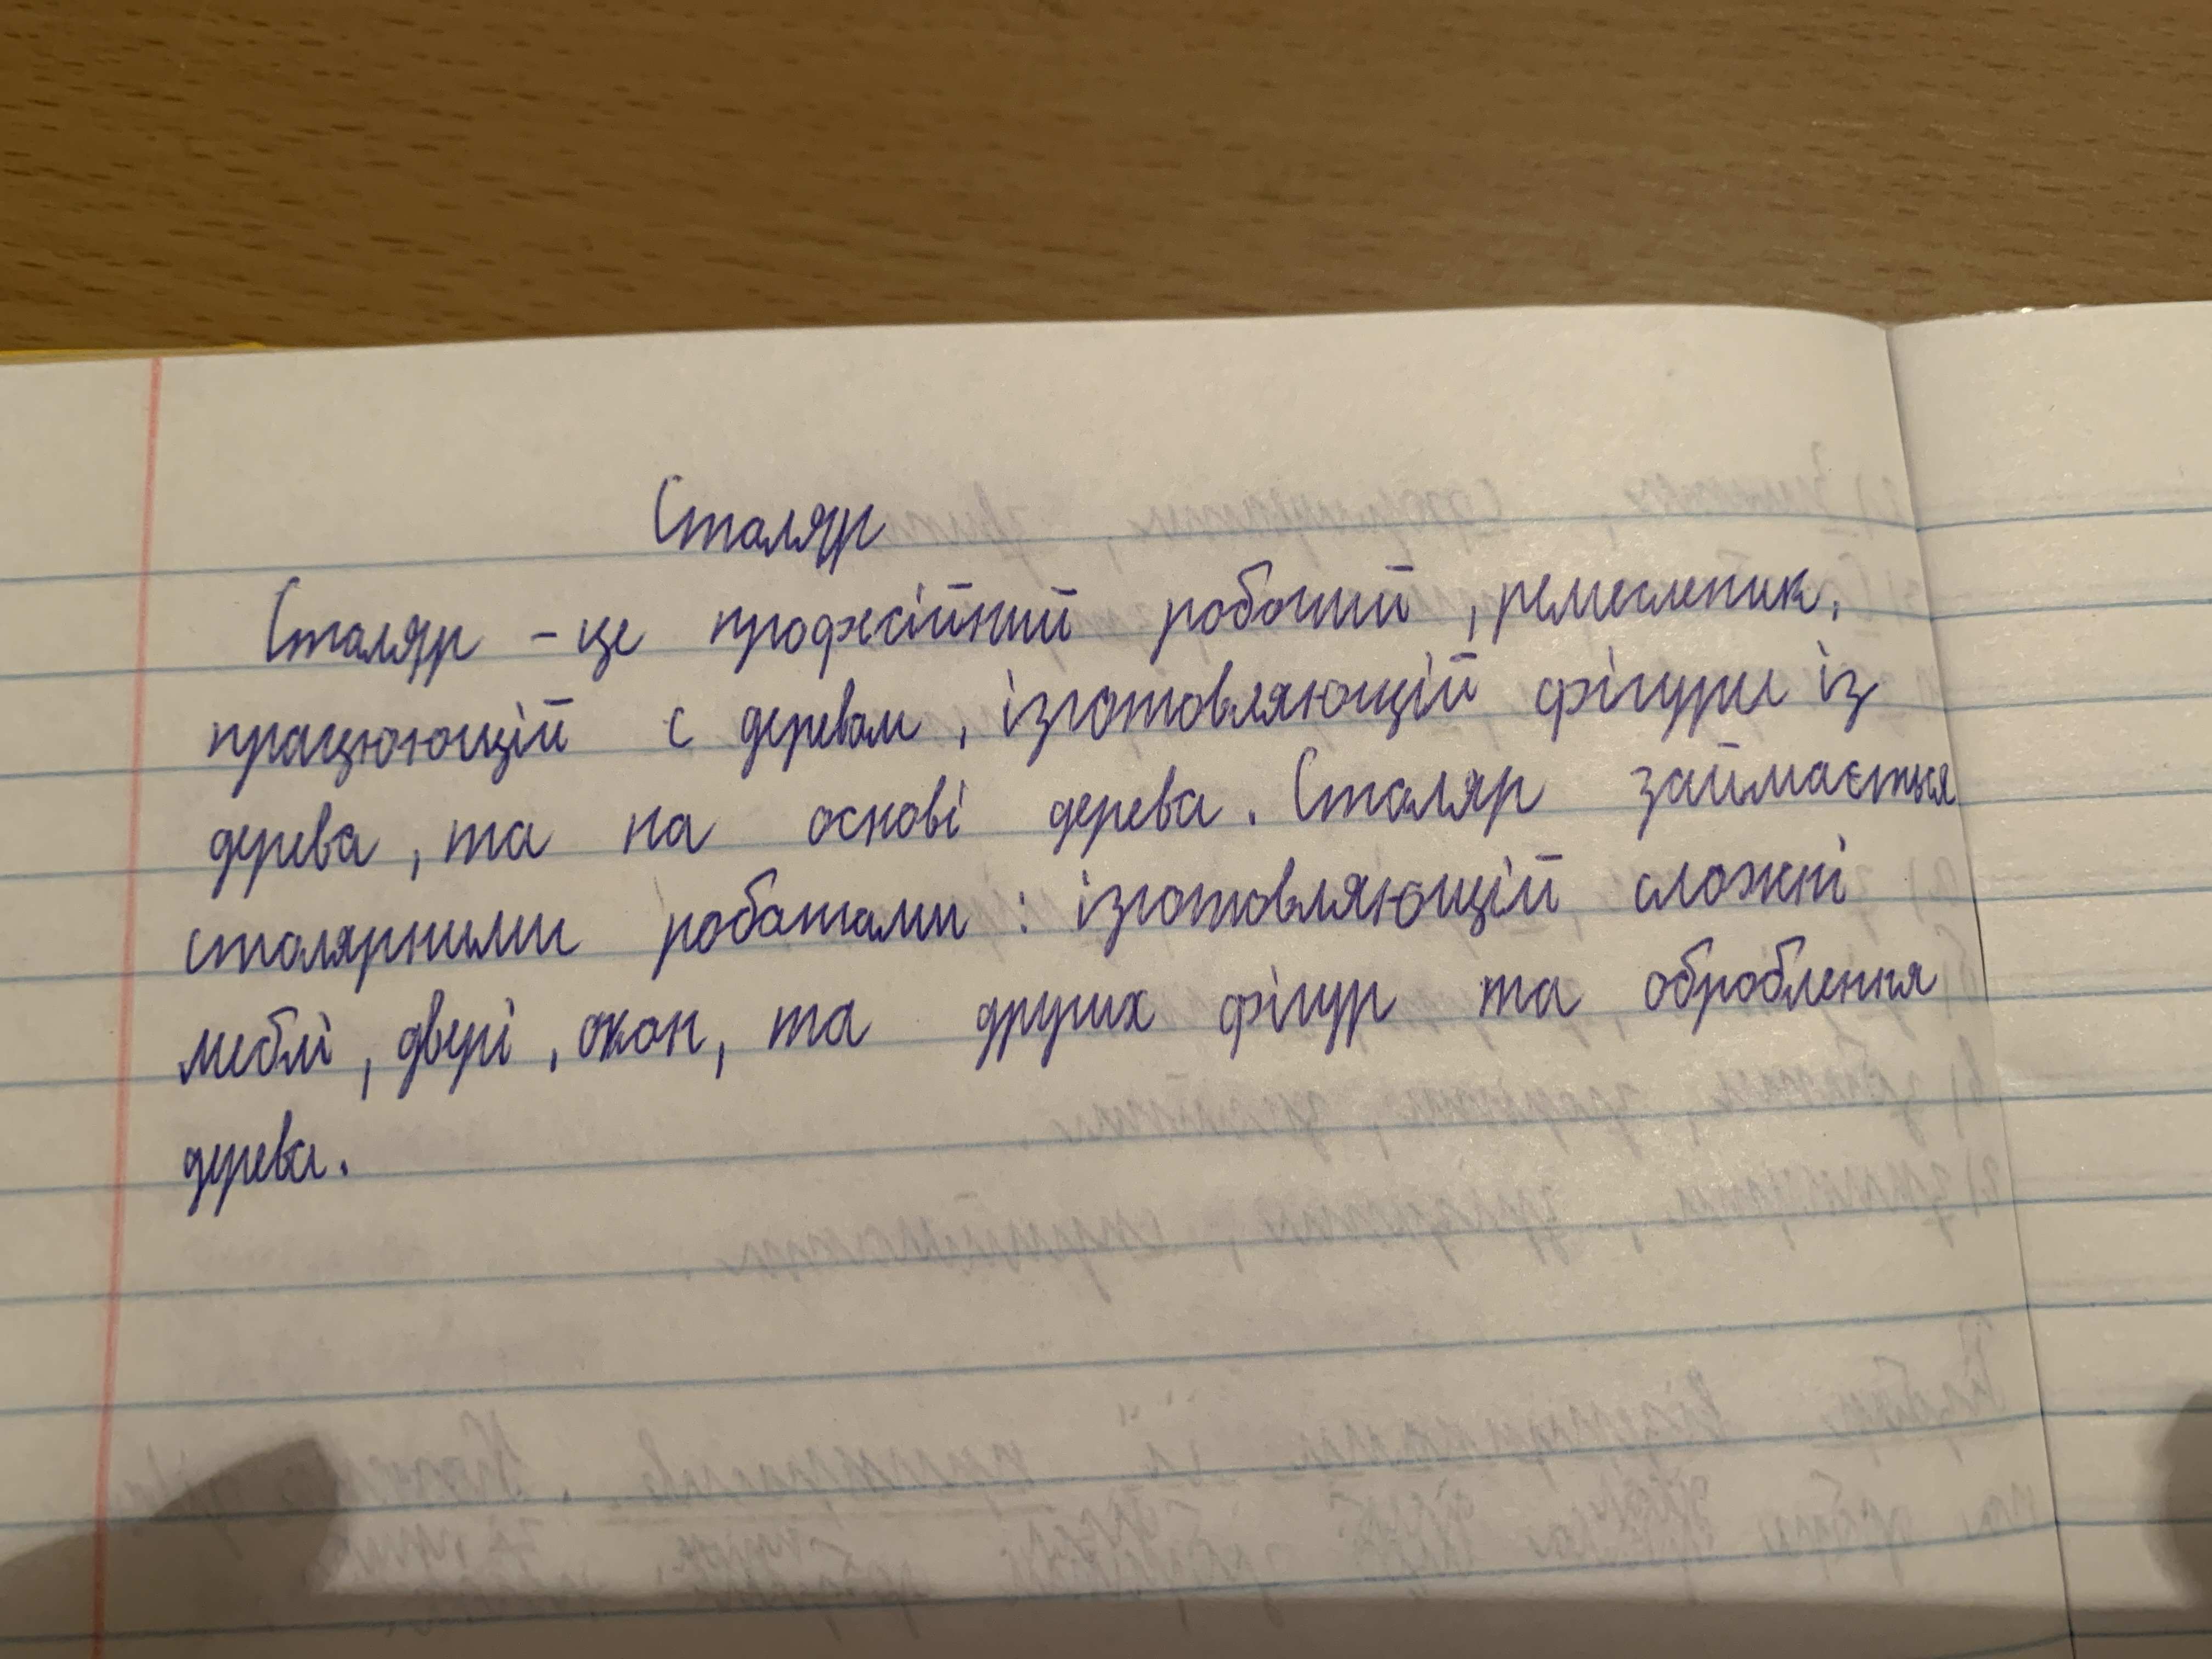 Сталяр
Сталяр – це професійний робочий, ремесленик,
працюющій с деревом, ізготовляющій фігури із
дерева, та на основі дерева. Сталяр займається
столярними роботами: ізготовляющій сложні
меблі, двері, окон, та других фігур та оброблення
дерева.